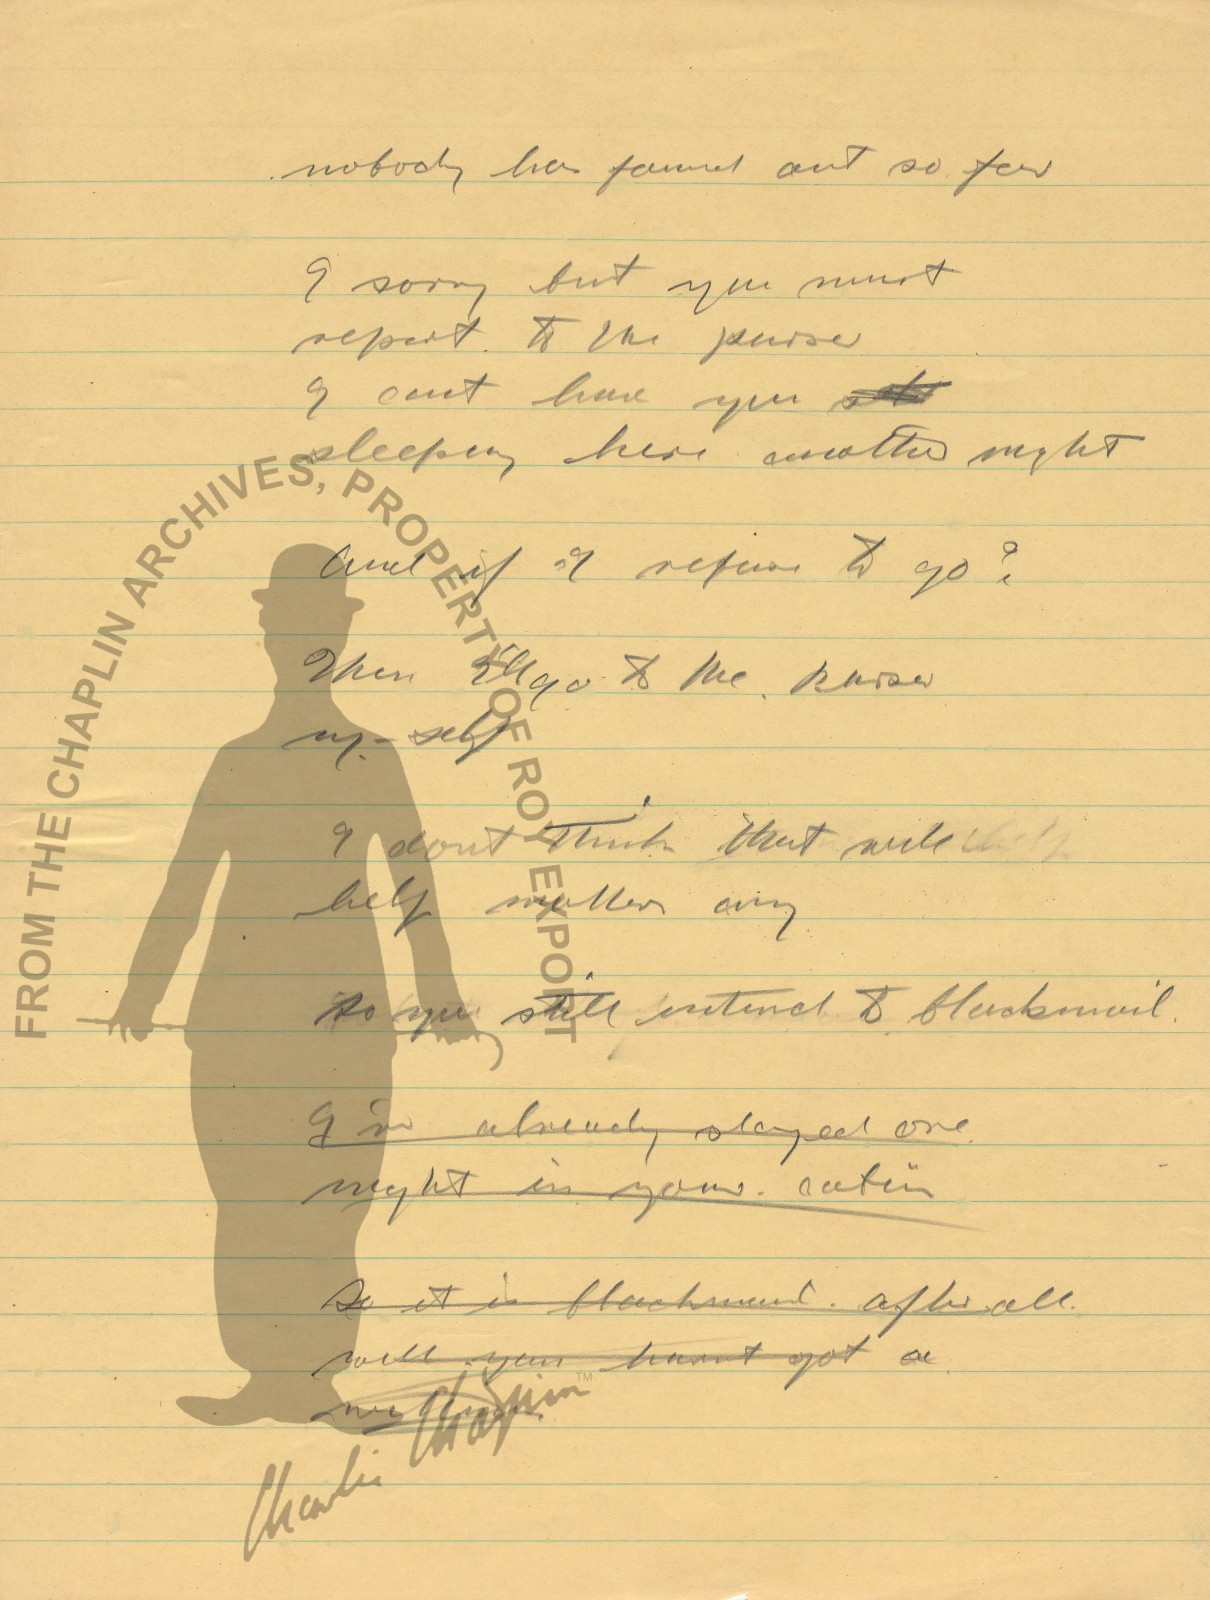 nobody has found out so far
I sorry but you must
report to the purser
I cant have you
sleeping here another night
And if I refuse to go?
Then I'll go to the purser
my-self
I dont think that will
help matters any
So you still intend to blackmail.
I've already stayed one
night in your cabin
So it is blackmail. after all.
well you havnt got a
FROM THE CHAPLIN ARCHIVES, PROPERTY OF ROY EXPORT
Charlie Chaplin™